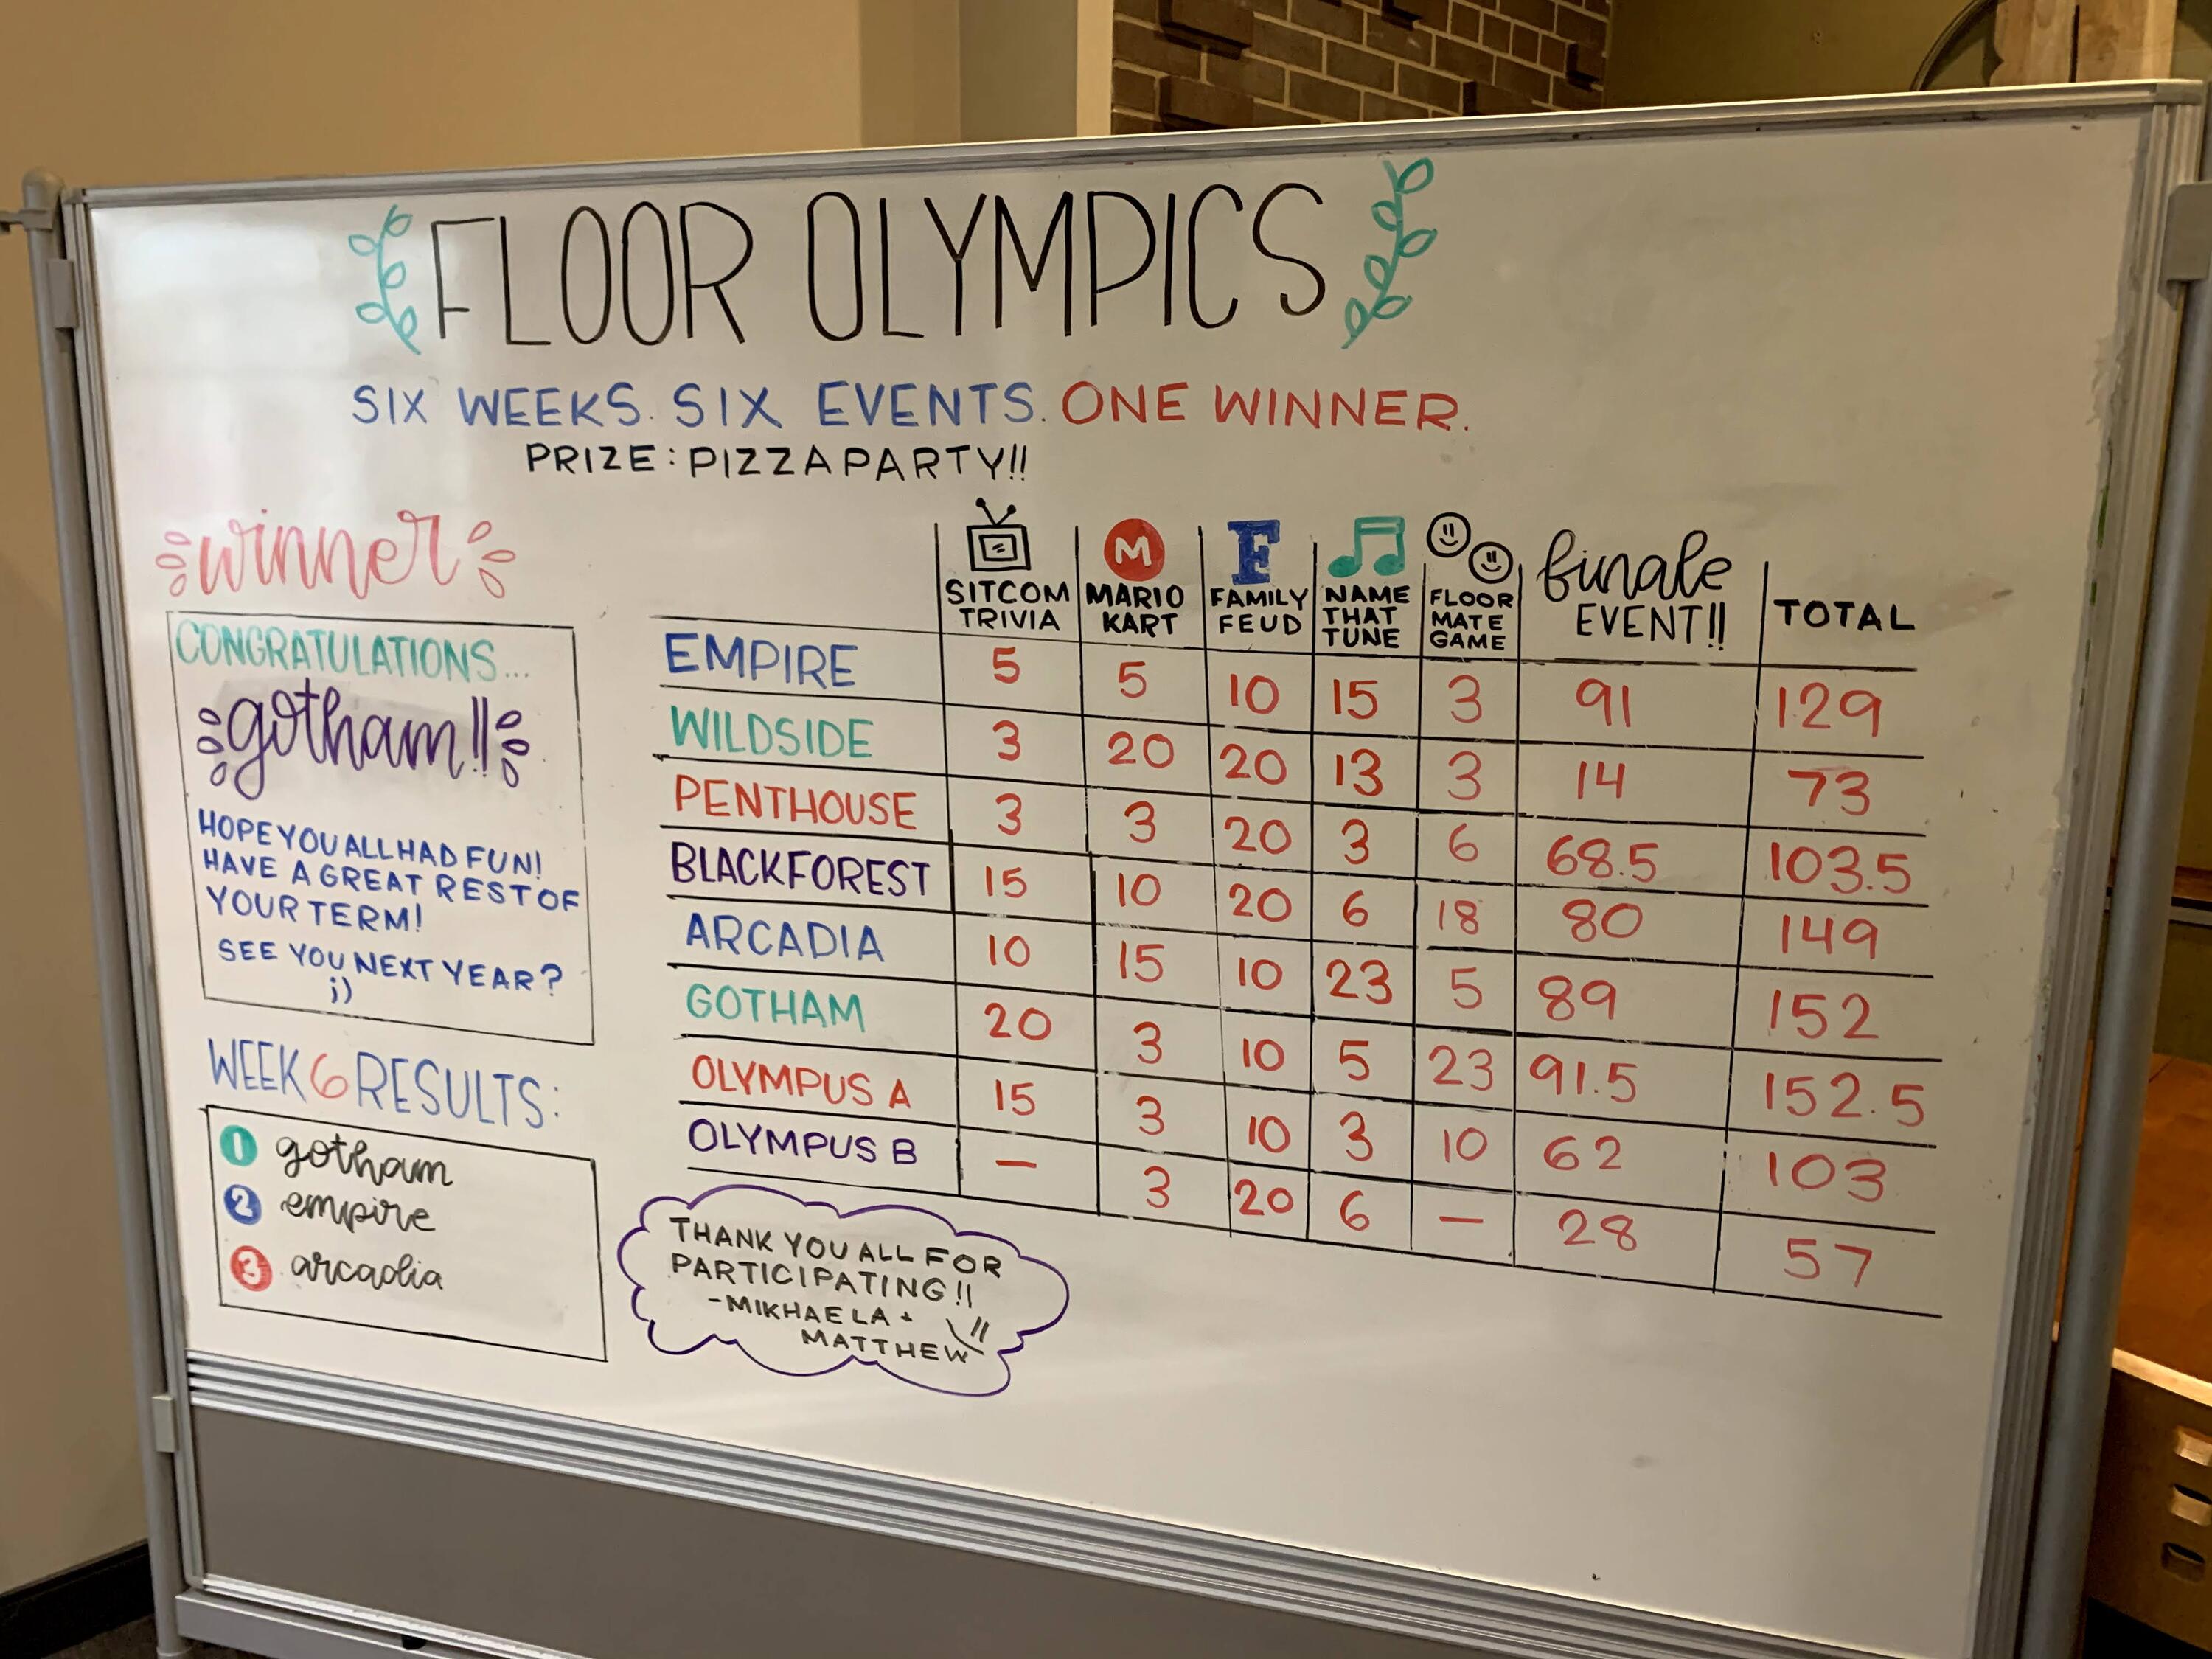 FLOOR OLYMPICS
SIX WEEKS. SIX EVENTS. ONE WINNER.
PRIZE: PIZZA PARTY!!
winner
CONGRATULATIONS...
gotham!!
HOPE YOU ALL HAD FUN!
HAVE A GREAT REST OF
YOUR TERM!
SEE YOU NEXT YEAR?
;)
WEEK 6 RESULTS:
1 gotham
2 empire
3 arcadia
M F
SITCOM TRIVIA MARIO KART FAMILY FEUD NAME THAT TUNE FLOOR MATE GAME finale EVENT!! TOTAL
EMPIRE 5 5 10 15 3 91 129
WILDSIDE 3 20 20 13 3 14 73
PENTHOUSE 3 3 20 3 6 68.5 103.5
BLACKFOREST 15 10 20 6 18 80 149
ARCADIA 10 15 10 23 5 89 152
GOTHAM 20 3 10 5 23 91.5 152.5
OLYMPUS A 15 3 10 3 10 62 103
OLYMPUS B — 3 20 6 — 28 57
THANK YOU ALL FOR
PARTICIPATING!!
-MIKHAELA +
MATTHEW